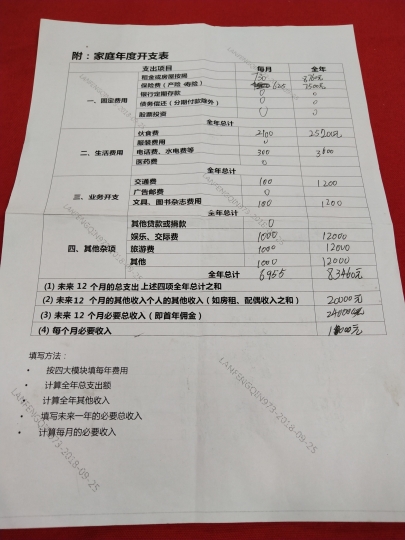 附：家庭年度开支表
支出项目 每月 全年
一、固定费用
租金或房屋按揭 730 8760元
保险费（产险·寿险） 625 7500元
银行定期存款 0
债务偿还（分期付款除外） 0
股票投资 0
全年总计
二、生活费用
伙食费 2100
服装费用 0
电话费、水电费等 300
医药费 0
全年总计
三、业务开支
交通费 100 1200
广告邮费 0
文具、图书杂志费用 100 1200
全年总计
四、其他杂项
其他贷款或捐款 0
娱乐、交际费 1000 12000
旅游费 1000 12000
其他 1000 12000
全年总计 6955 83460元
(1) 未来 12 个月的总支出上述四项全年总计之和
(2) 未来 12 个月的其他收入个人的其他收入（如房租、配偶收入之和） 20000元
(3) 未来 12 个月必要总收入（即首年佣金） 240000元
(4) 每个月必要收入
填写方法：
• 按四大模块填每年费用
• 计算全年总支出额
• 计算全年其他收入
• 填写未来一年的必要总收入
• 计算每月的必要收入
LANFENGQIN973-2018-09-25
LANFENGQIN973-2018-09-25
LANFENGQIN973-2018-09-25
LANFENGQIN973-2018-09-25